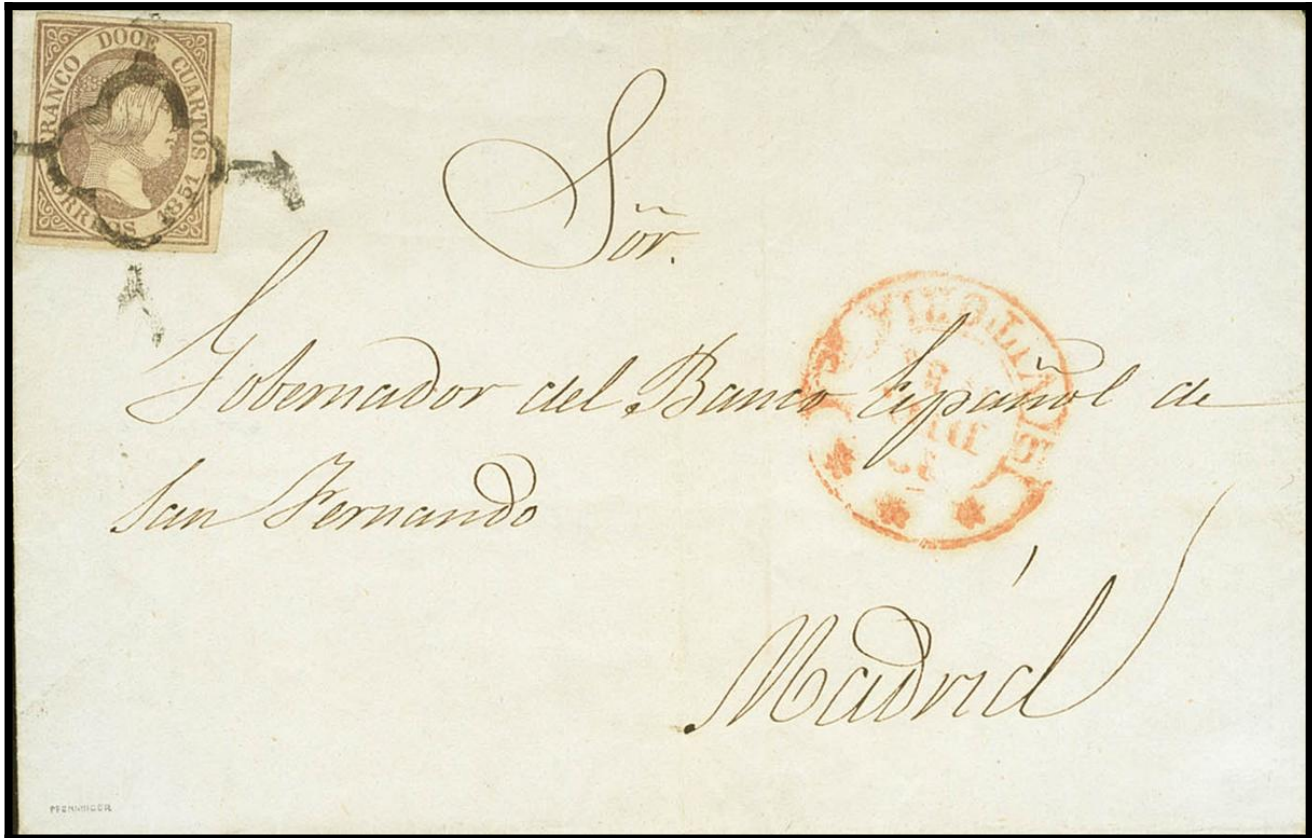 FRANCO DOCE CUARTOS
CORREOS 1851
Sñor.
Gobernador del Banco Español de
San Fernando
Madrid
PFENNINGER